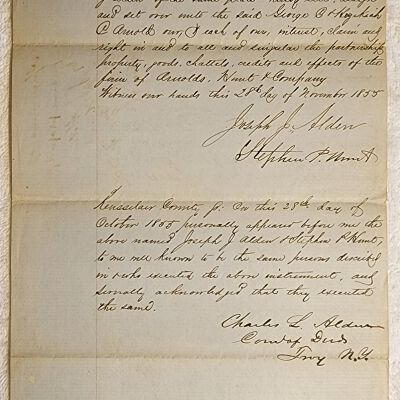 and set over unto the said George C & Hezekiah
C Arnold our, & each of our, interest, claim and
right in and to all and singular the partnership
property, goods, chattels, credits and effects of the
firm of Arnolds. Hunt & Company
Witness our hands this 28th day of November 1855
Joseph J. Alden
Stephen P. Hunt
Rensselaer County SS: On this 28th day of
October 1855 personally appeared before me the
above named Joseph J Alden & Stephen P Hunt,
to me well known to be the same persons described
in & who executed the above instrument, and
severally acknowledged that they executed
the same.
Charles L. Alden
Com of Deeds
Troy N.Y.